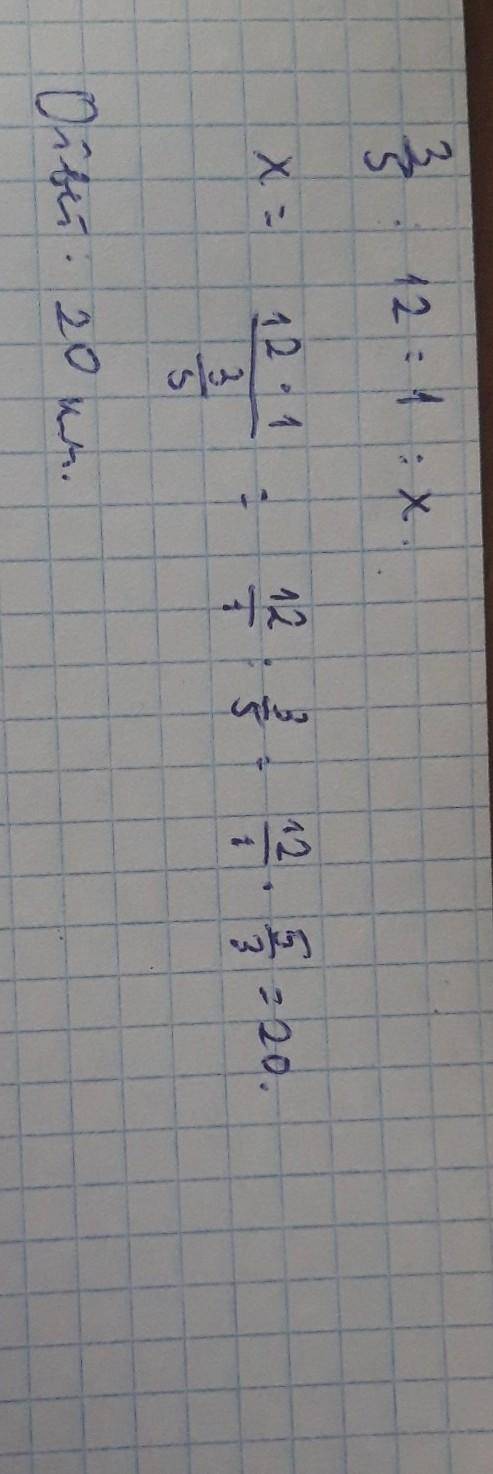 3/5 : 12 = 1 : x.
x = (12 · 1)/(3/5) = 12/1 : 3/5 = 12/1 · 5/3 = 20.
Ответ: 20 км.